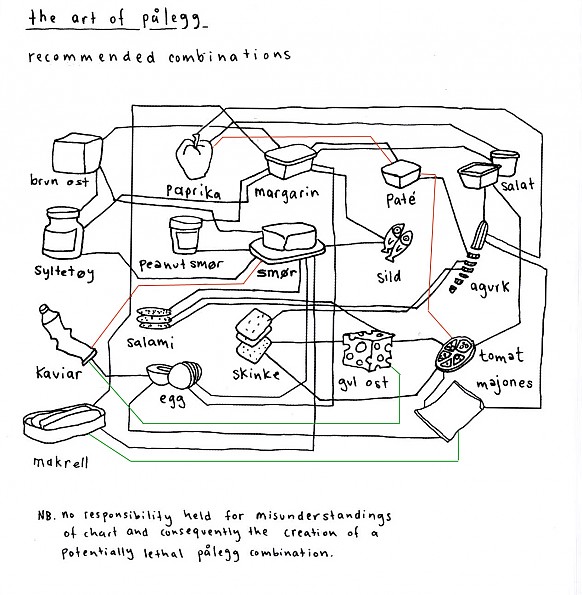 the art of pålegg
recommended combinations
brun ost
paprika
margarin
Paté
salat
syltetøy
peanut smør
smør
sild
agurk
Kaviar
salami
skinke
gul ost
tomat
majones
egg
makrell
NB. no responsibility held for misunderstandings
of chart and consequently the creation of a
potentially lethal pålegg combination.